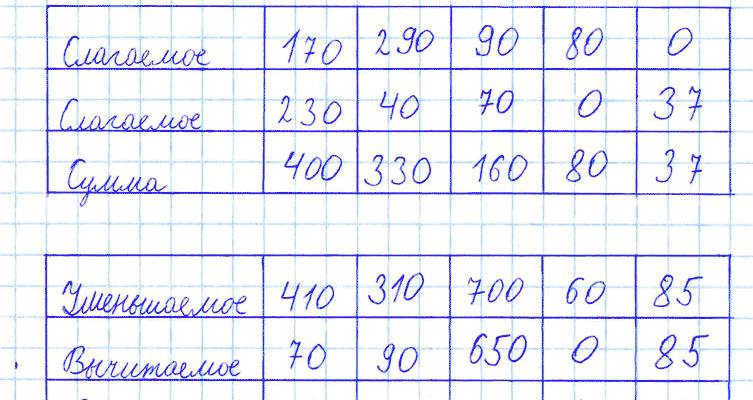 Слагаемое 170 290 90 80 0
Слагаемое 230 40 70 0 37
Сумма 400 330 160 80 37
Уменьшаемое 410 310 700 60 85
Вычитаемое 70 90 650 0 85